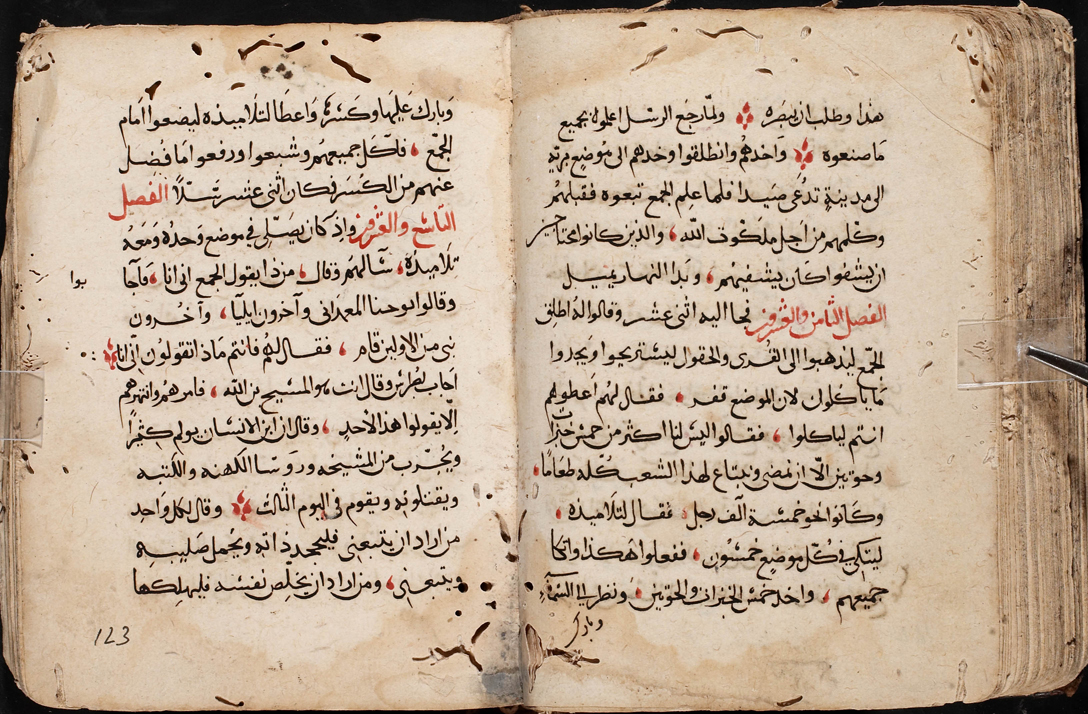 هذا وطلب ان يبصره ولما رجع الرسل اعلموه بجميع
ما صنعوه واخدهم وانطلقوا وحدهم الى موضع بريه
الى مدينة تدعى صيدا فلما علم الجمع تبعوه فقبلهم
وكلمهم من اجل ملكوت الله والذين كانوا محتاجين
ان يشفوا كان يشفيهم وبدا النهار يميل
الفصل الثامن والعشرون فجا اليه اثنى عشر وقالوا له اطلق
الجمع ليذهبوا الى القرى والحقول ليستريحوا ويجدوا
ما ياكلون لان الموضع قفر فقال لهم اعطوهم
انتم لياكلوا فقالوا ليس لنا اكثر من خمس خبزات
وحوتين الا ان نمضى ونبتاع لهذا الشعب كله طعاما
وكانوا نحو خمسة الف رجل فقال لتلاميذه
ليتكي في كل موضع خمسون ففعلوا هكذا واتكا
جميعهم واخد خمس الخبزات والحوتين ونظر الى السماء
وبارك
وبارك عليها وكسر واعطا لتلاميذه ليضعوا امام
الجمع فاكل جميعهم وشبعوا ورفعوا ما فضل
عنهم من الكسر فكان اثنى عشر سلا الفصل
التاسع والعشرون واذ كان يصلى في موضع وحده ومعه
تلاميذه سالهم وقال من ذا يقول الجمع انى انا فاجا
بوا
وقالوا يوحنا المعمدانى وآخرون ايليا وآخرون
نبى من الاولين قام فقال لهم فانتم ماذا تقولون انى انا
اجاب بطرس وقال انت هو المسيح بن الله فامرهم وانتهرهم
الا يقولوا هذا لاحد وقال ان ابن الانسان يولم كثيرا
ويجرب من المشيخه وروسا الكهنه والكتبه
ويقتلونه ويقوم في اليوم الثالث وقال لكل واحد
من اراد ان يتبعنى فليجحد ذاته ويحمل صليبه
ويتبعنى ومن اراد ان يخلص نفسه فليهلكها
123